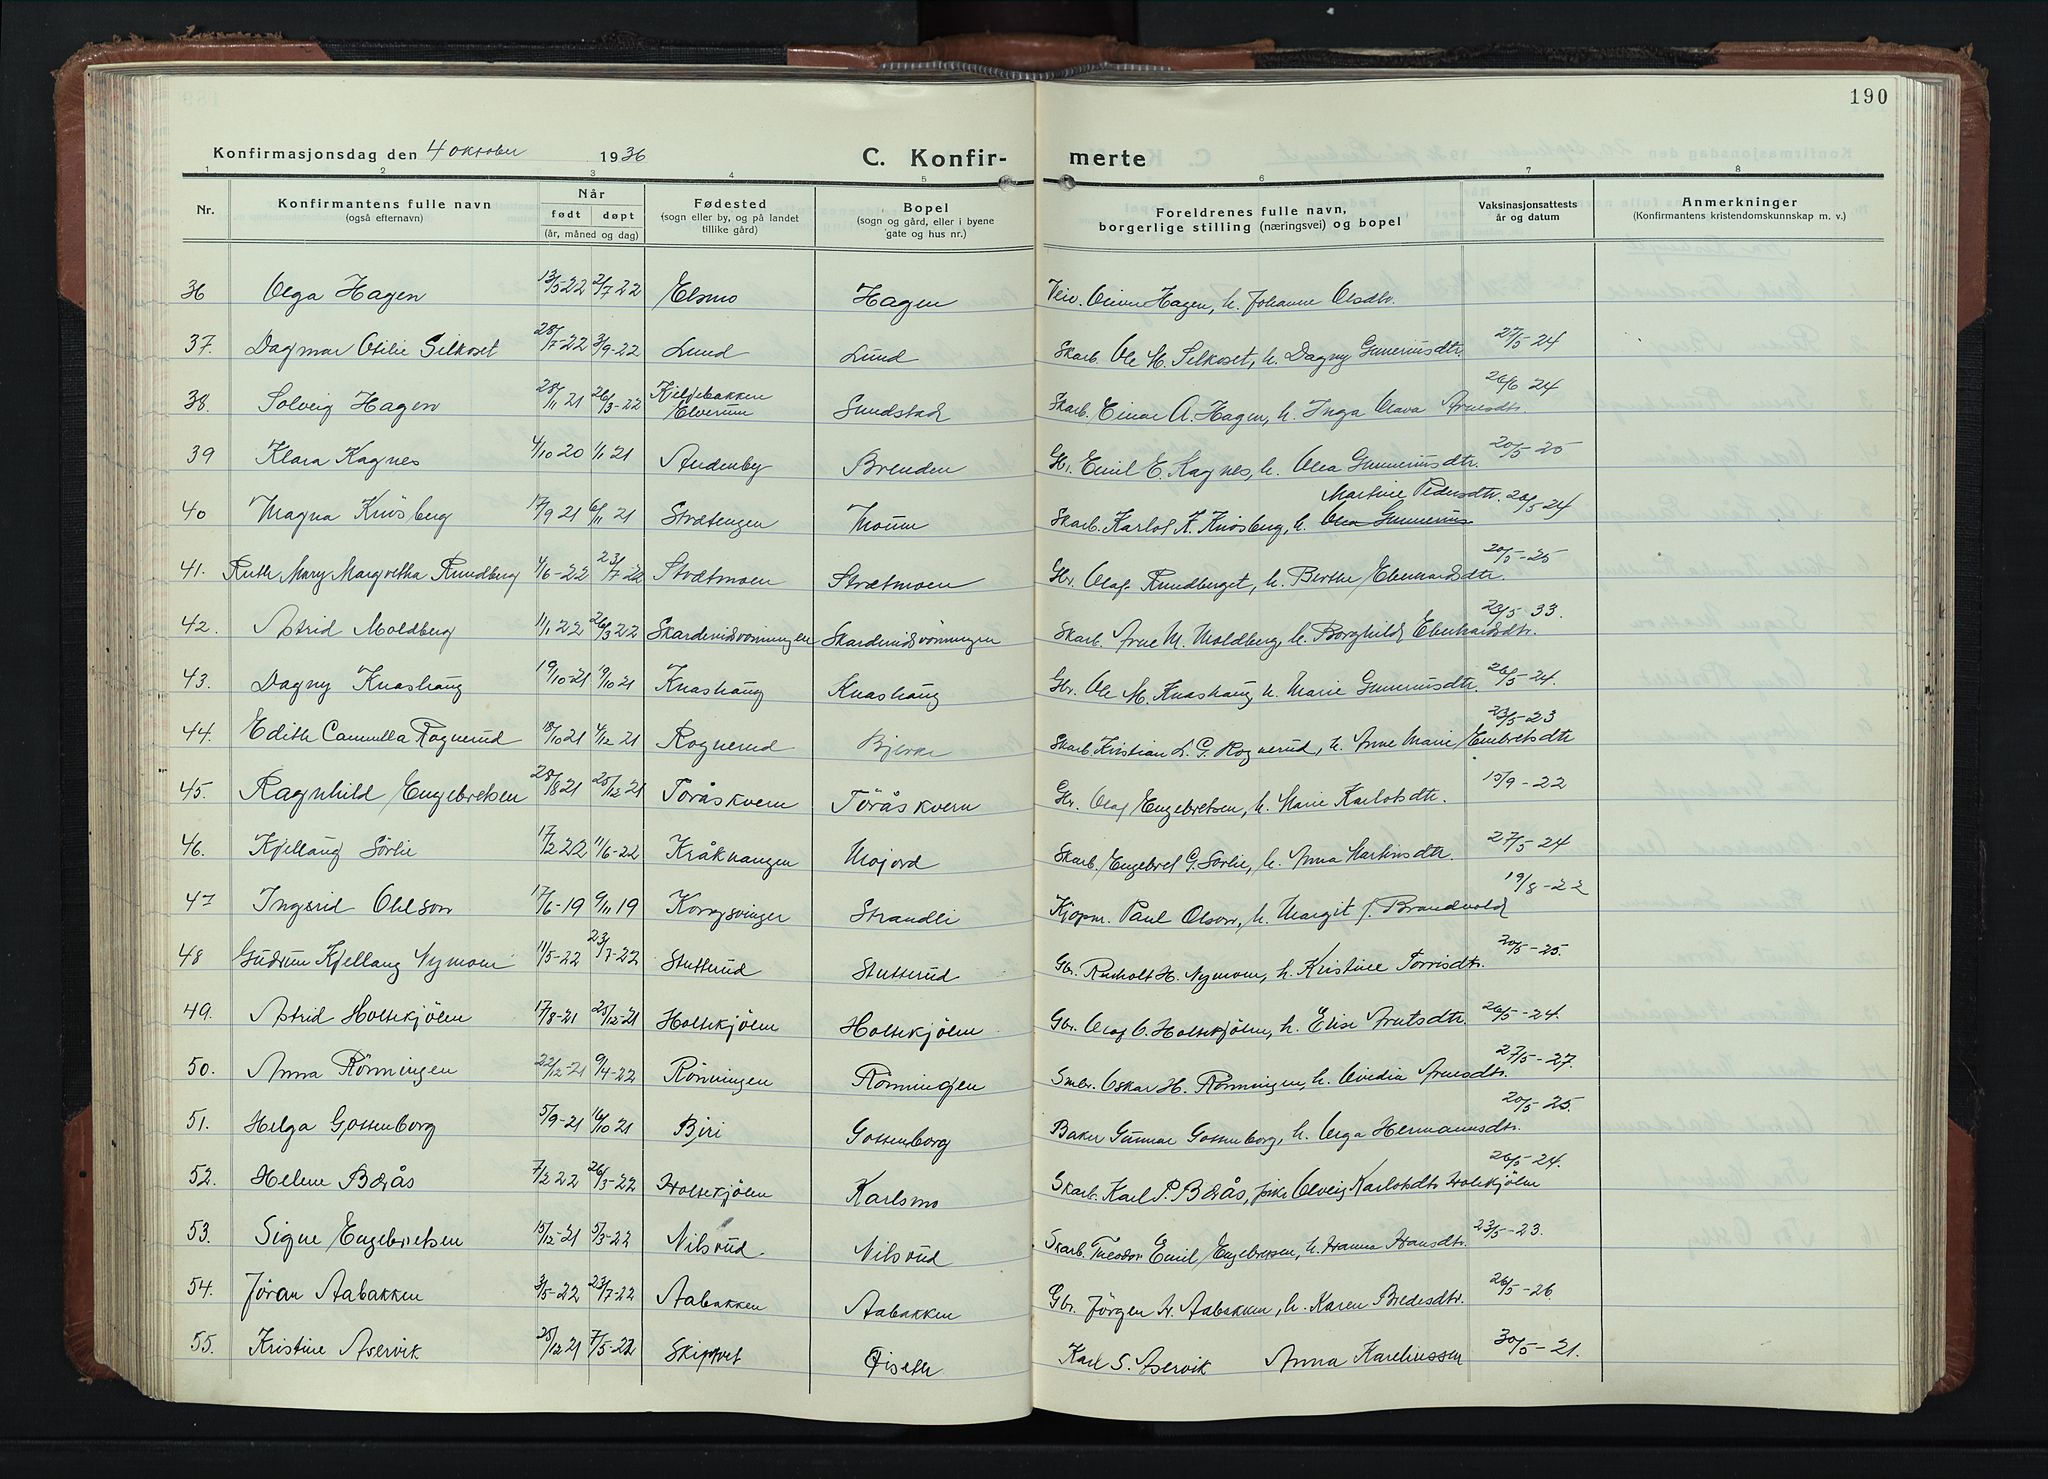 190
Konfirmasjonsdag den 4 oktober 1936 C. Konfir- merte
1 2 3 4 5 6 7 8
Nr. Konfirmantens fulle navn (også efternavn) Når født døpt (år, måned og dag) Fødested (sogn eller by, og på landet tillike gård) Bopel (sogn og gård, eller i byene gate og hus nr.) Foreldrenes fulle navn, borgerlige stilling (næringsvei) og bopel Vaksinasjonsattests år og datum Anmerkninger (Konfirmantens kristendomskunnskap m. v.)
36 Olga Hagen 13/5 22 2/7 22 Elsmo Hagen Hagen, h. Johanne Olsdtr.
37. Dagmar Otilie Silkoset 28/7-22 3/9-22 Lund Lund Skarb. Ole M. Silkoset, h. Dagny Gunneriusdtr. 27/5-24
38. Solveig Hagen 28/11 21 26/3-22 Kjeldebakken Elverum Sundstad Skarb. Einar A. Hagen, h. Inga Olava Arnesdtr. 26/6 24
39 Klara Kagnes 4/10 20 1/1 21 Andenby Brenden Gbr. Emil E. Kagnes, h. Olea Gunneriusdtr. 20/5-25
40 Magna Knisberg 17/9 21 6/11 21 Strætengen Moum Skarb. Karlot K. Knisberg, h. Olea Gunnerius Martine Pedersdtr. 26/5-24
41. Ruth Mary Margretha Rundberg 4/6-22 23/7-22 Strætmoen Strætmoen Gbr. Olaf Rundberget, h. Berthe Eberhardsdtr. 20/5-25
42. Astrid Moldberg 11/1 22 26/3 22 Skardevidsvorningen Skardevidsvorningen Skarb. Arne M. Moldberg, h. Borghild Eberhardsdtr. 26/5-33.
43. Dagny Knashaug 19/10-21 19/10 21 Knashaug Knashaug Gbr. Ole M. Knashaug h. Marie Gunneriusdtr. 26/5-24.
44. Edith Cammilla Rognerud 18/10 21 4/12 21 Rognerud Bjerke Skarb. Kristian L. G. Rognerud, h. Anne Marie Embretsdtr 23/5-23
45. Ragnhild Engebretsen 28/8 21 25/12-21 Töråskvern Töråskvern Gbr. Olaf Engebretsen, h. Marie Karlotsdtr. 15/9-22
46. Kjellaug Sörlie 17/2 22 11/6-22 Kråkvangen Mojord Skarb. Engebret G. Sörlie, h. Anna Martinsdtr. 27/5-24
47 Ingrid Ohlson 17/6-19 9/11 19 Kongsvinger Strandli Kjöpm. Paul Olson, h. Margit f. Brandvold 19/8-22
48 Gudrun Kjellaug Nymoen 11/5-22 23/7-22 Stutterud Stutterud Gbr. Reinholt H. Nymoen, h. Kristine Torrisdtr. 20/5-25.
49. Astrid Holtekjölen 17/8-21 25/12-21 Holtekjölen Holtekjölen Gbr. Olaf O. Holtekjölen, h. Elise Arntsdtr. 26/5-24.
50. Anna Rönningen 22/12-21 9/4-22 Rönningen Rönningen Smbr. Oskar H. Rönningen, h. Ovedia Arnesdtr. 27/5-27.
51. Helga Gossenborg 5/9-21 16/10 21 Biri Gossenborg Baker Gunnar Gossenborg, h. Olga Hermannsdtr. 20/5-25.
52. Helene Bdrås 7/2 22 26/3-22 Holtekjölen Karlsmo Skarb. Karl P. Bdrås, Olveig Karlotsdtr. Holtekjölen 26/5-24.
53. Signe Engebretsen 15/12-21 5/3-22 Nilsrud Nilsrud Skarb. Theodor Emil Engebretsen, h. Hanna Hansdtr. 23/5-23.
54. Jöran Aabakken 3/5-22 23/7-22 Aabakken Aabakken Gbr. Jörgen H. Aabakken, h. Karen Bredesdtr. 26/5-26.
55. Kristine Aservik 25/12 21 7/5-22 Skiptvet Giseth Karl S. Aservik Anna Kareliussen 30/5-21.